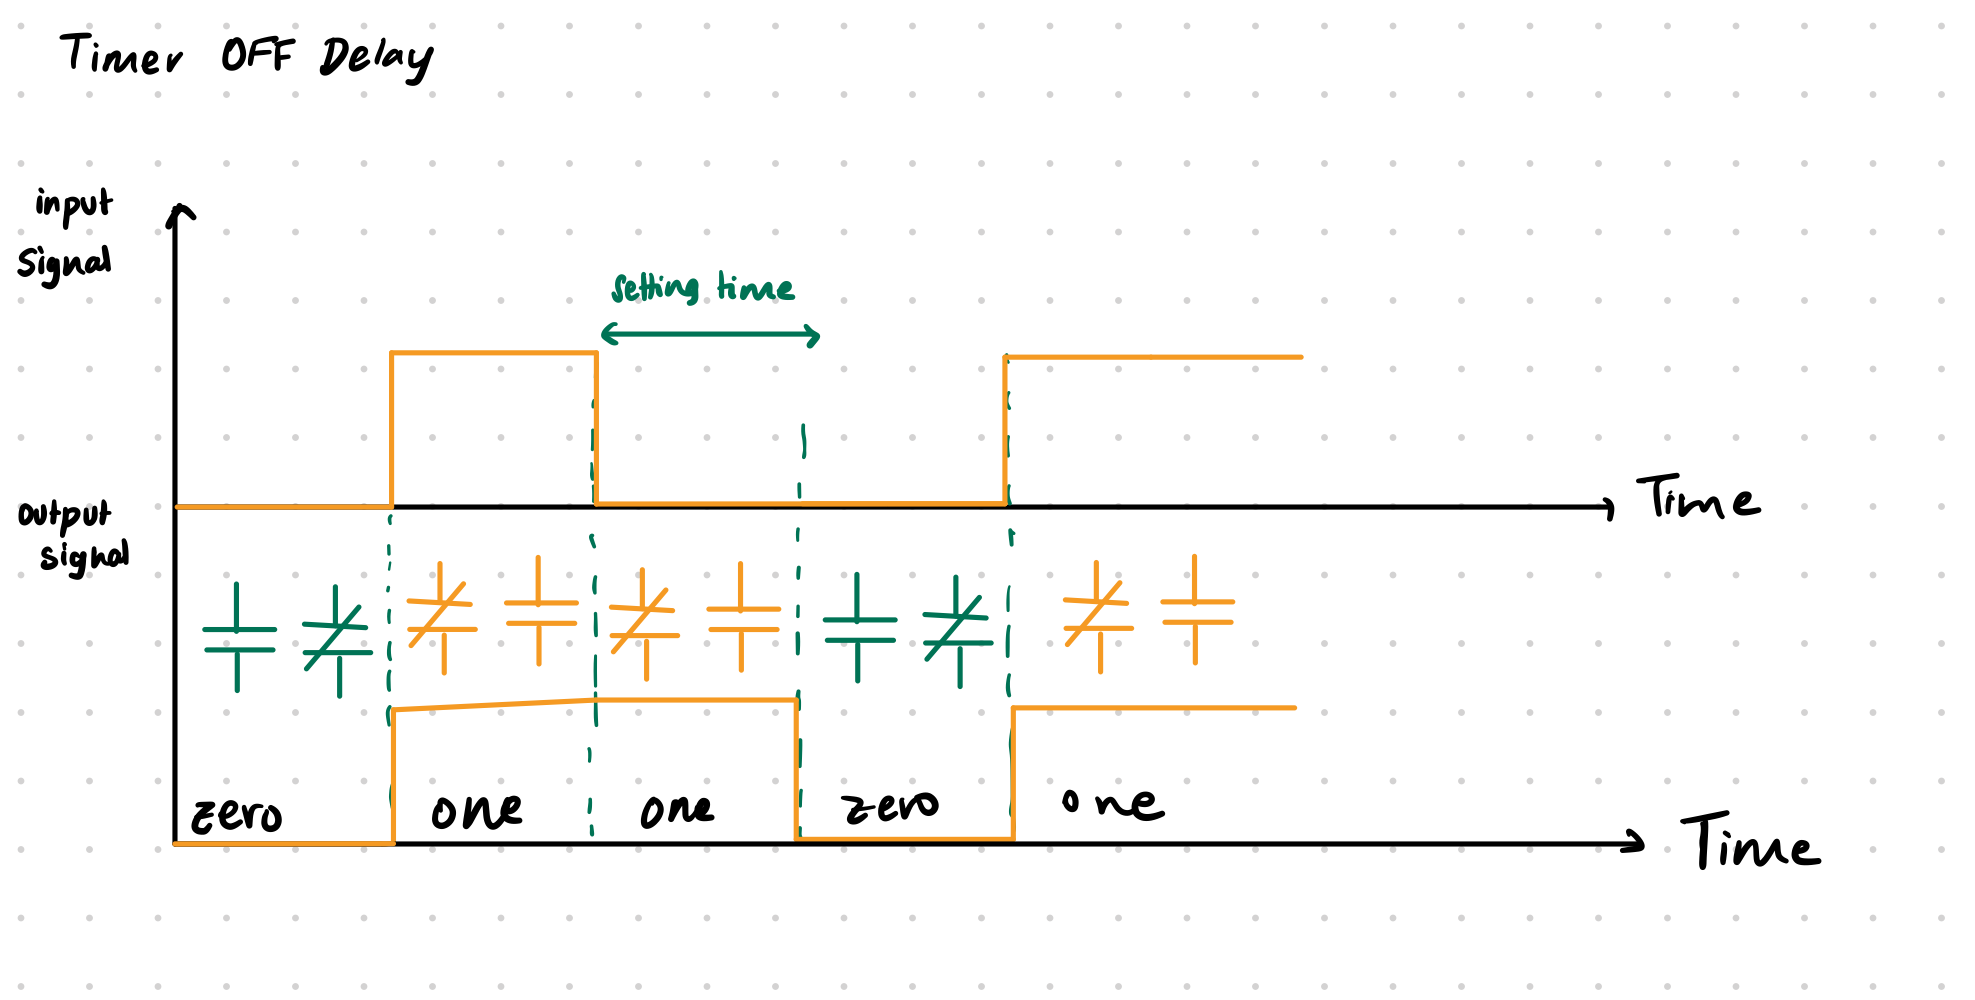 Timer OFF Delay
input
signal
setting time
Time
output
signal
zero one one zero one
Time